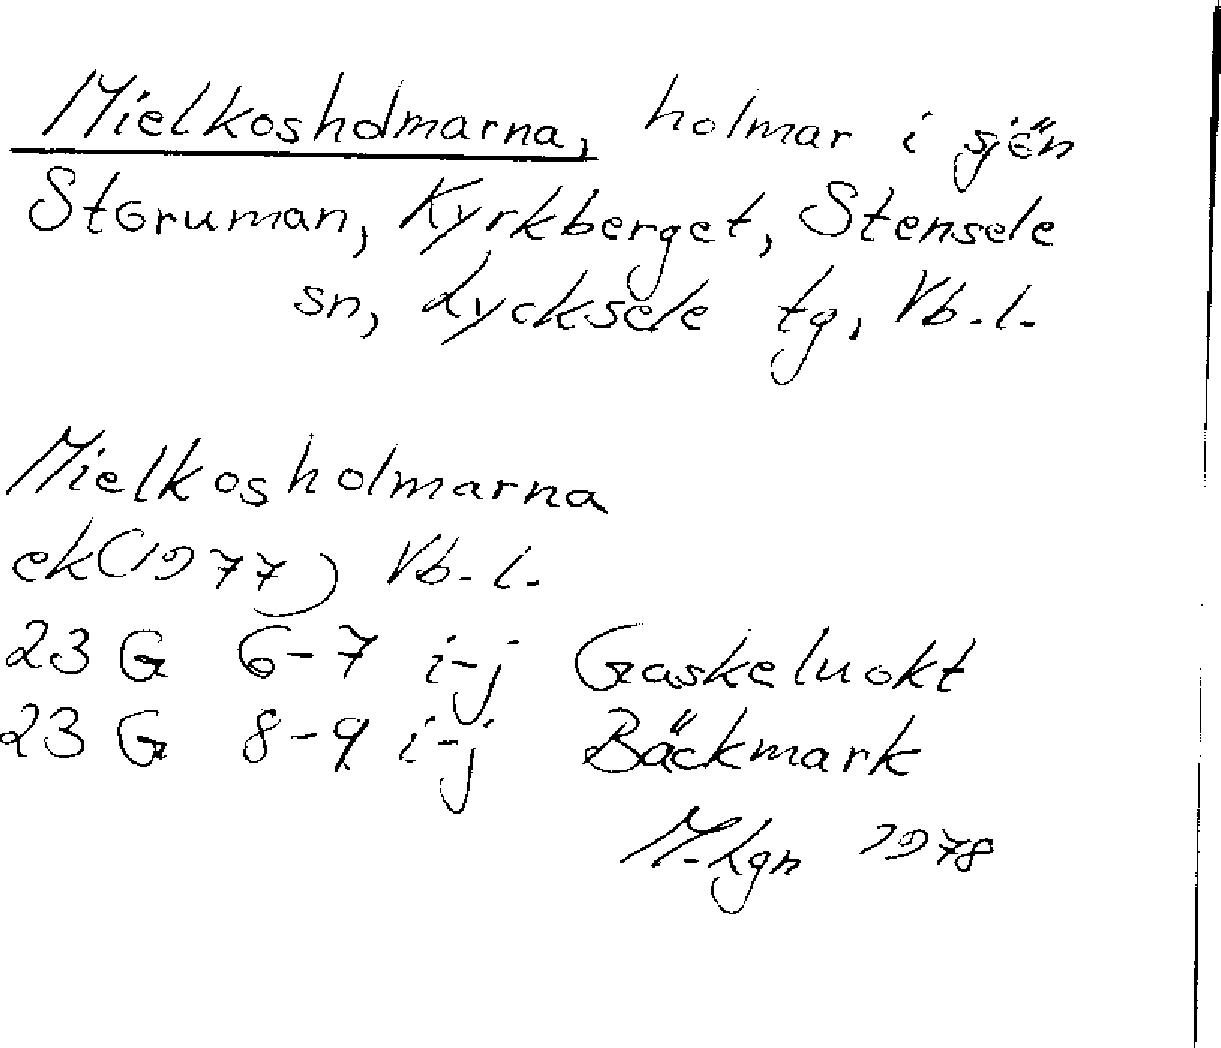 Mielkosholmarna, holmar i sjön
Storuman, Kyrkberget, Stensele
sn, Lycksele tg, Vb.l.
Mielkosholmarna
ek(1977) Vb.l.
23 G 6-7 i-j Gaskeluokt
23 G 8-9 i-j Bäckmark
M-Lgn 1978